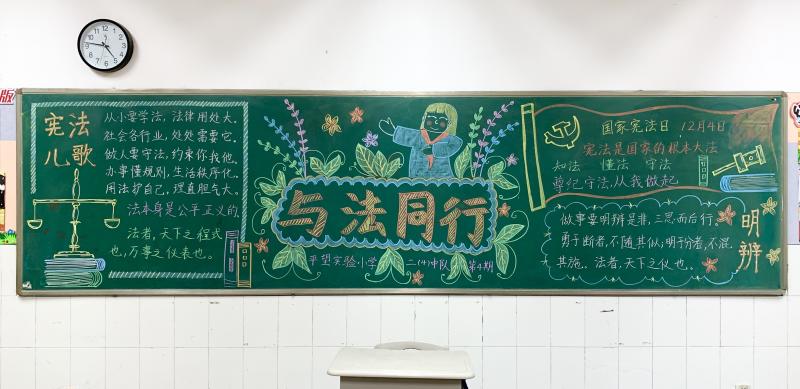 版
宪法
儿歌
从小要学法，法律用处大。
社会各行业，处处需要它。
做人要守法，约束你我他。
办事懂规则，生活秩序化。
用法护自己，理直胆气大。
法本身是公平正义的，
法者，天下之程式
也，万事之仪表也。
与法同行
平望实验小学 二(4)中队 第4期
国家宪法日 12月4日
宪法是国家的根本大法
知法 懂法 守法
尊纪守法，从我做起
做事要明辨是非，三思而后行。
勇于断者，不随其似；明于分者，不混
其施。法者，天下之仪也。
明辨